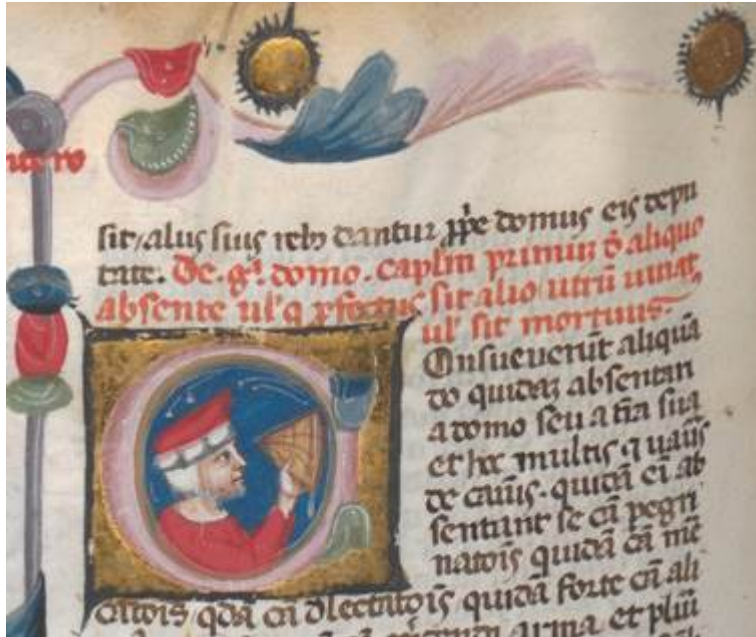 sit / alijs suis reb3 dantur ꝓpͥe domus eis depu
tate. De .gͣ. domo. caplm̄ primuz ꝺ̄ aliquo
absente ul' q̇ ꝓfectus sit alio utrū uiuat
ul' sit mortuus.
Consueuerūt aliquā
do quidaz absentari
a domo seu a tr̄a sua
et hoc multis q̇ uarijs
de causis. quidā ei ab
sentant se cā pegri
natōis quidā cā mē
catōis qdā cā dlectatōis quidā forte cā ali
arma et pluri